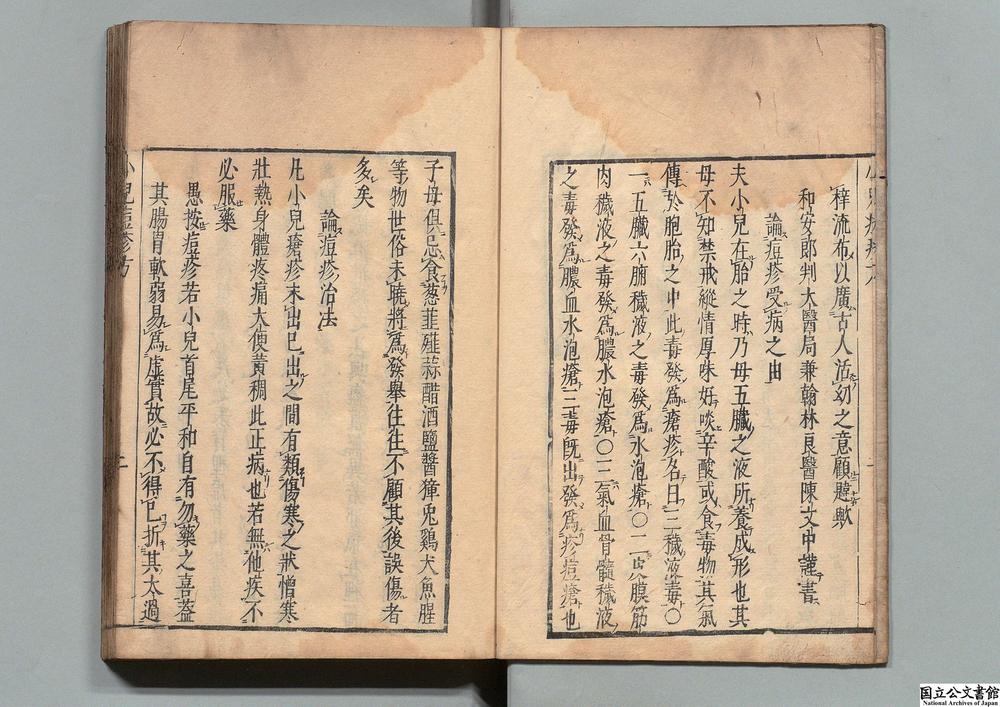 梓流布以廣古人活幼之意顧韙歟
和安郎判太醫局兼翰林良醫陳文中謹書
論痘疹受病之由
夫小兒在胎之時乃母五臟之液所養成形也其
母不知禁戒縱情厚味好啖辛酸或食毒物其氣
傳於胞胎之中此毒發爲瘡疹名曰三穢液毒〇
一五臟六腑穢液之毒發爲水泡瘡〇二皮膜筋
肉穢液之毒發爲膿水泡瘡〇三氣血骨髓穢液
之毒發爲膿血水泡瘡三毒旣出發爲疹痘瘡也
子母俱忌食葱韮薤蒜醋酒鹽醬獐兎鷄犬魚腥
等物世俗未曉將爲發舉往往不顧其後誤傷者
多矣
論痘疹治法
凡小兒瘡疹未出已出之間有類傷寒之狀憎寒
壯熱身體疼痛大便黃稠此正病也若無他疾不
必服藥
愚按痘疹若小兒首尾平和自有勿藥之喜蓋
其腸胃軟弱易爲虛實故必不得已折其太過
小兒痘疹方
二
国立公文書館
National Archives of Japan